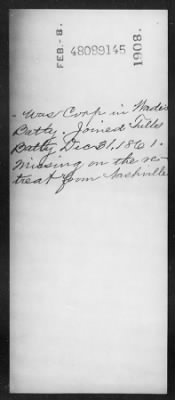 FEB.-8.
48099145
1908.
- Was Corp in Wade's
Batty. Joined Tull's
Batty Dec 21, 1861.
Missing on the re-
treat from Nashville